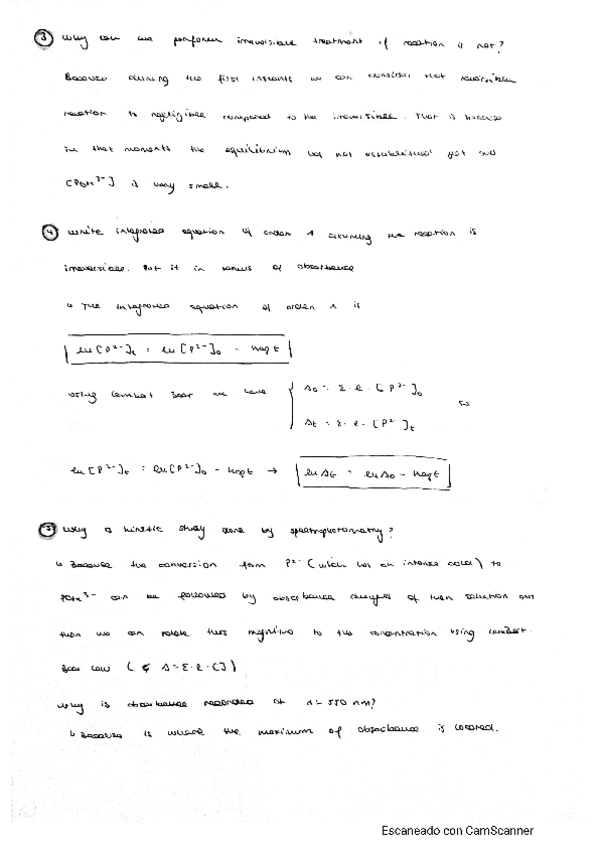 ③ Why can we perform irreversible treatment if reaction is not?
Because during the first instants we can consider that reversible
reaction is negligible compared to the irreversible. That is because
in that moments the equilibrium has not established yet and
[POH³⁻] is very small.
④ Write integrated equation of order 1 assuming the reaction is
irreversible. Put it in terms of absorbance
↳ The integrated equation of order 1 is
ln[P²⁻]t = ln[P²⁻]₀ - kapt
using Lambert Beer we have { A₀ = ε · l · [P²⁻]₀
At = ε · l · [P²⁻]t so
ln[P²⁻]t = ln[P²⁻]₀ - kapt → ln At = ln A₀ - kapt
⑤ Why a kinetic study done by spectrophotometry?
↳ Because the conversion from P²⁻ (which has an intense color) to
POH³⁻ can be followed by absorbance changes of the solution and
then we can relate this magnitud to the concentration using Lambert-
Beer law ( A = ε · l · [])
Why is absorbance recorded at λ = 550 nm?
↳ Because is where the maximum of absorbance is located.
Escaneado con CamScanner